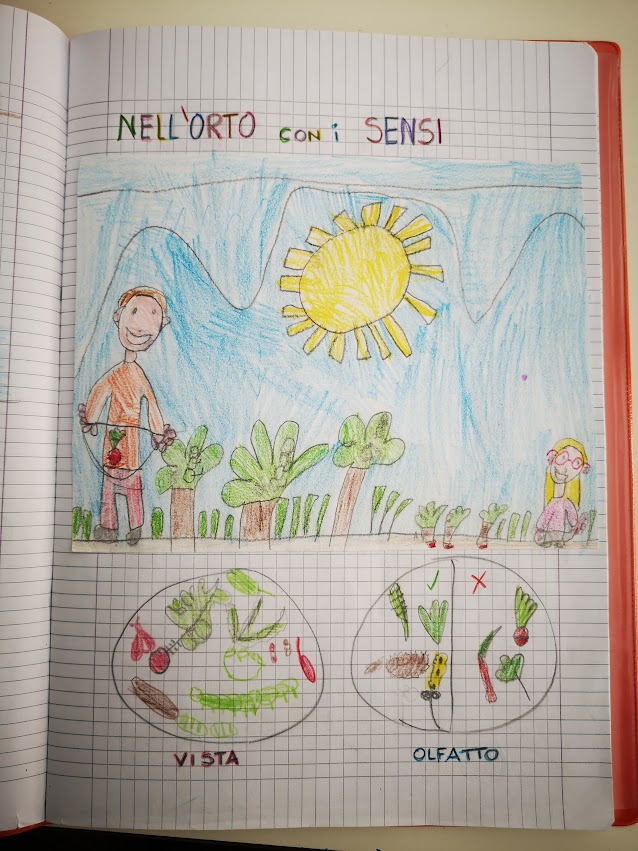 NELL'ORTO CON i SENSI
VISTA
OLFATTO